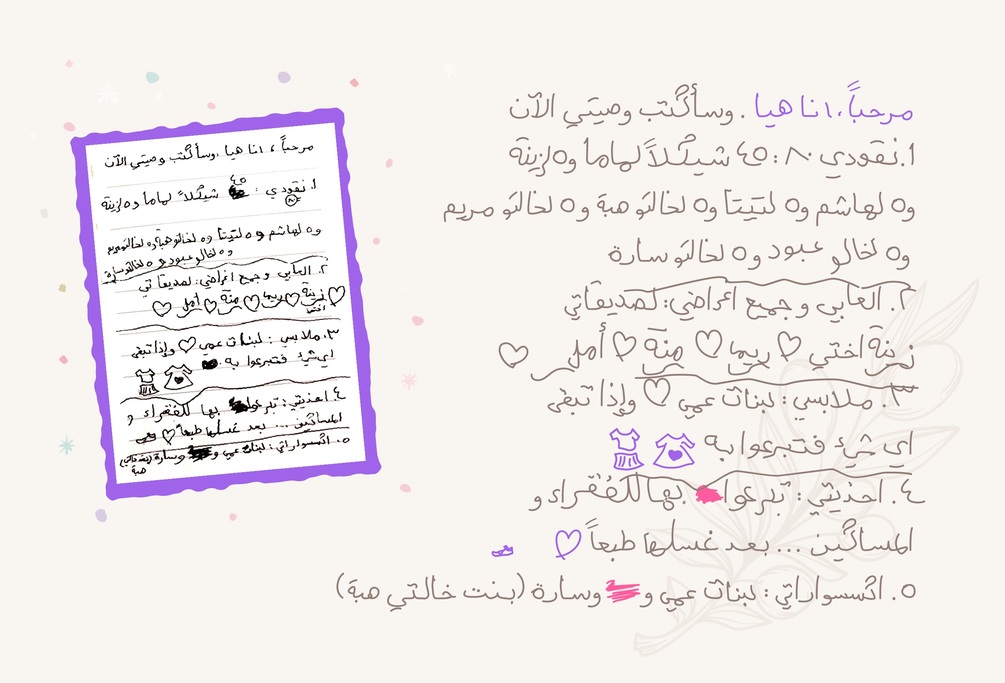 مرحباً، انا هيا . وسأكتب وصيتي الآن
١. نقودي ٨٠: ٤٥ شيكلاً لماما و٥ لزينة
و٥ لهاشم و٥ لتيتا و٥ لخالتو هبة و٥ لخالتو مريم
و٥ لخالو عبود و٥ لخالتو سارة
٢. العابي و جميع اغراضي: لصديقاتي
زينة اختي ريما منة أمل
٣. ملابسي: لبنات عمي وإذا تبقى
اي شيء فتبرعوا به
٤. احذيتي: تبرعوا بها للفقراء و
المساكين ... بعد غسلها طبعاً
٥. اكسسواراتي: لبنات عمي و وسارة (بنت خالتي هبة)
مرحباً ، انا هيا . وسأكتب وصيتي الآن
١. نقودي : ٤٥ شيكلاً لماما و٥ لزينة
٨٠
و٥ لهاشم و٥ لتيتا و٥ لخالتو هبة و٥ لخالتو مريم
و٥ لخالو عبود و٥ لخالتو سارة
٢. العابي و جميع اغراضي: لصديقاتي
زينة ريما منة أمل
اختي
٣. ملابسي : لبنات عمي وإذا تبقى
اي شيء فتبرعوا به
٤. احذيتي: تبرعوا بها للفقراء و
المساكين ... بعد غسلها طبعاً
٥. اكسسواراتي: لبنات عمي و وسارة (بنت خالتي
هبة)